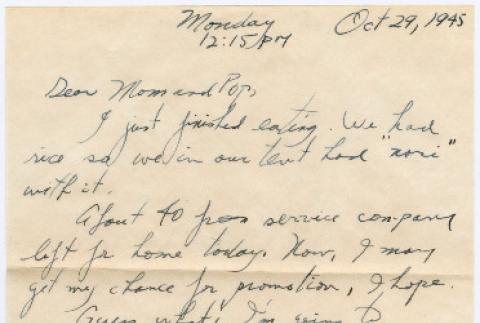 Monday Oct 29, 1945
12:15 PM
Dear Mom and Pop,
I just finished eating. We had
rice so we in our tent had "nori"
with it.
About 40 from service company
left for home today. Now, I may
get my chance for promotion, I hope.
Guess what, I'm going to